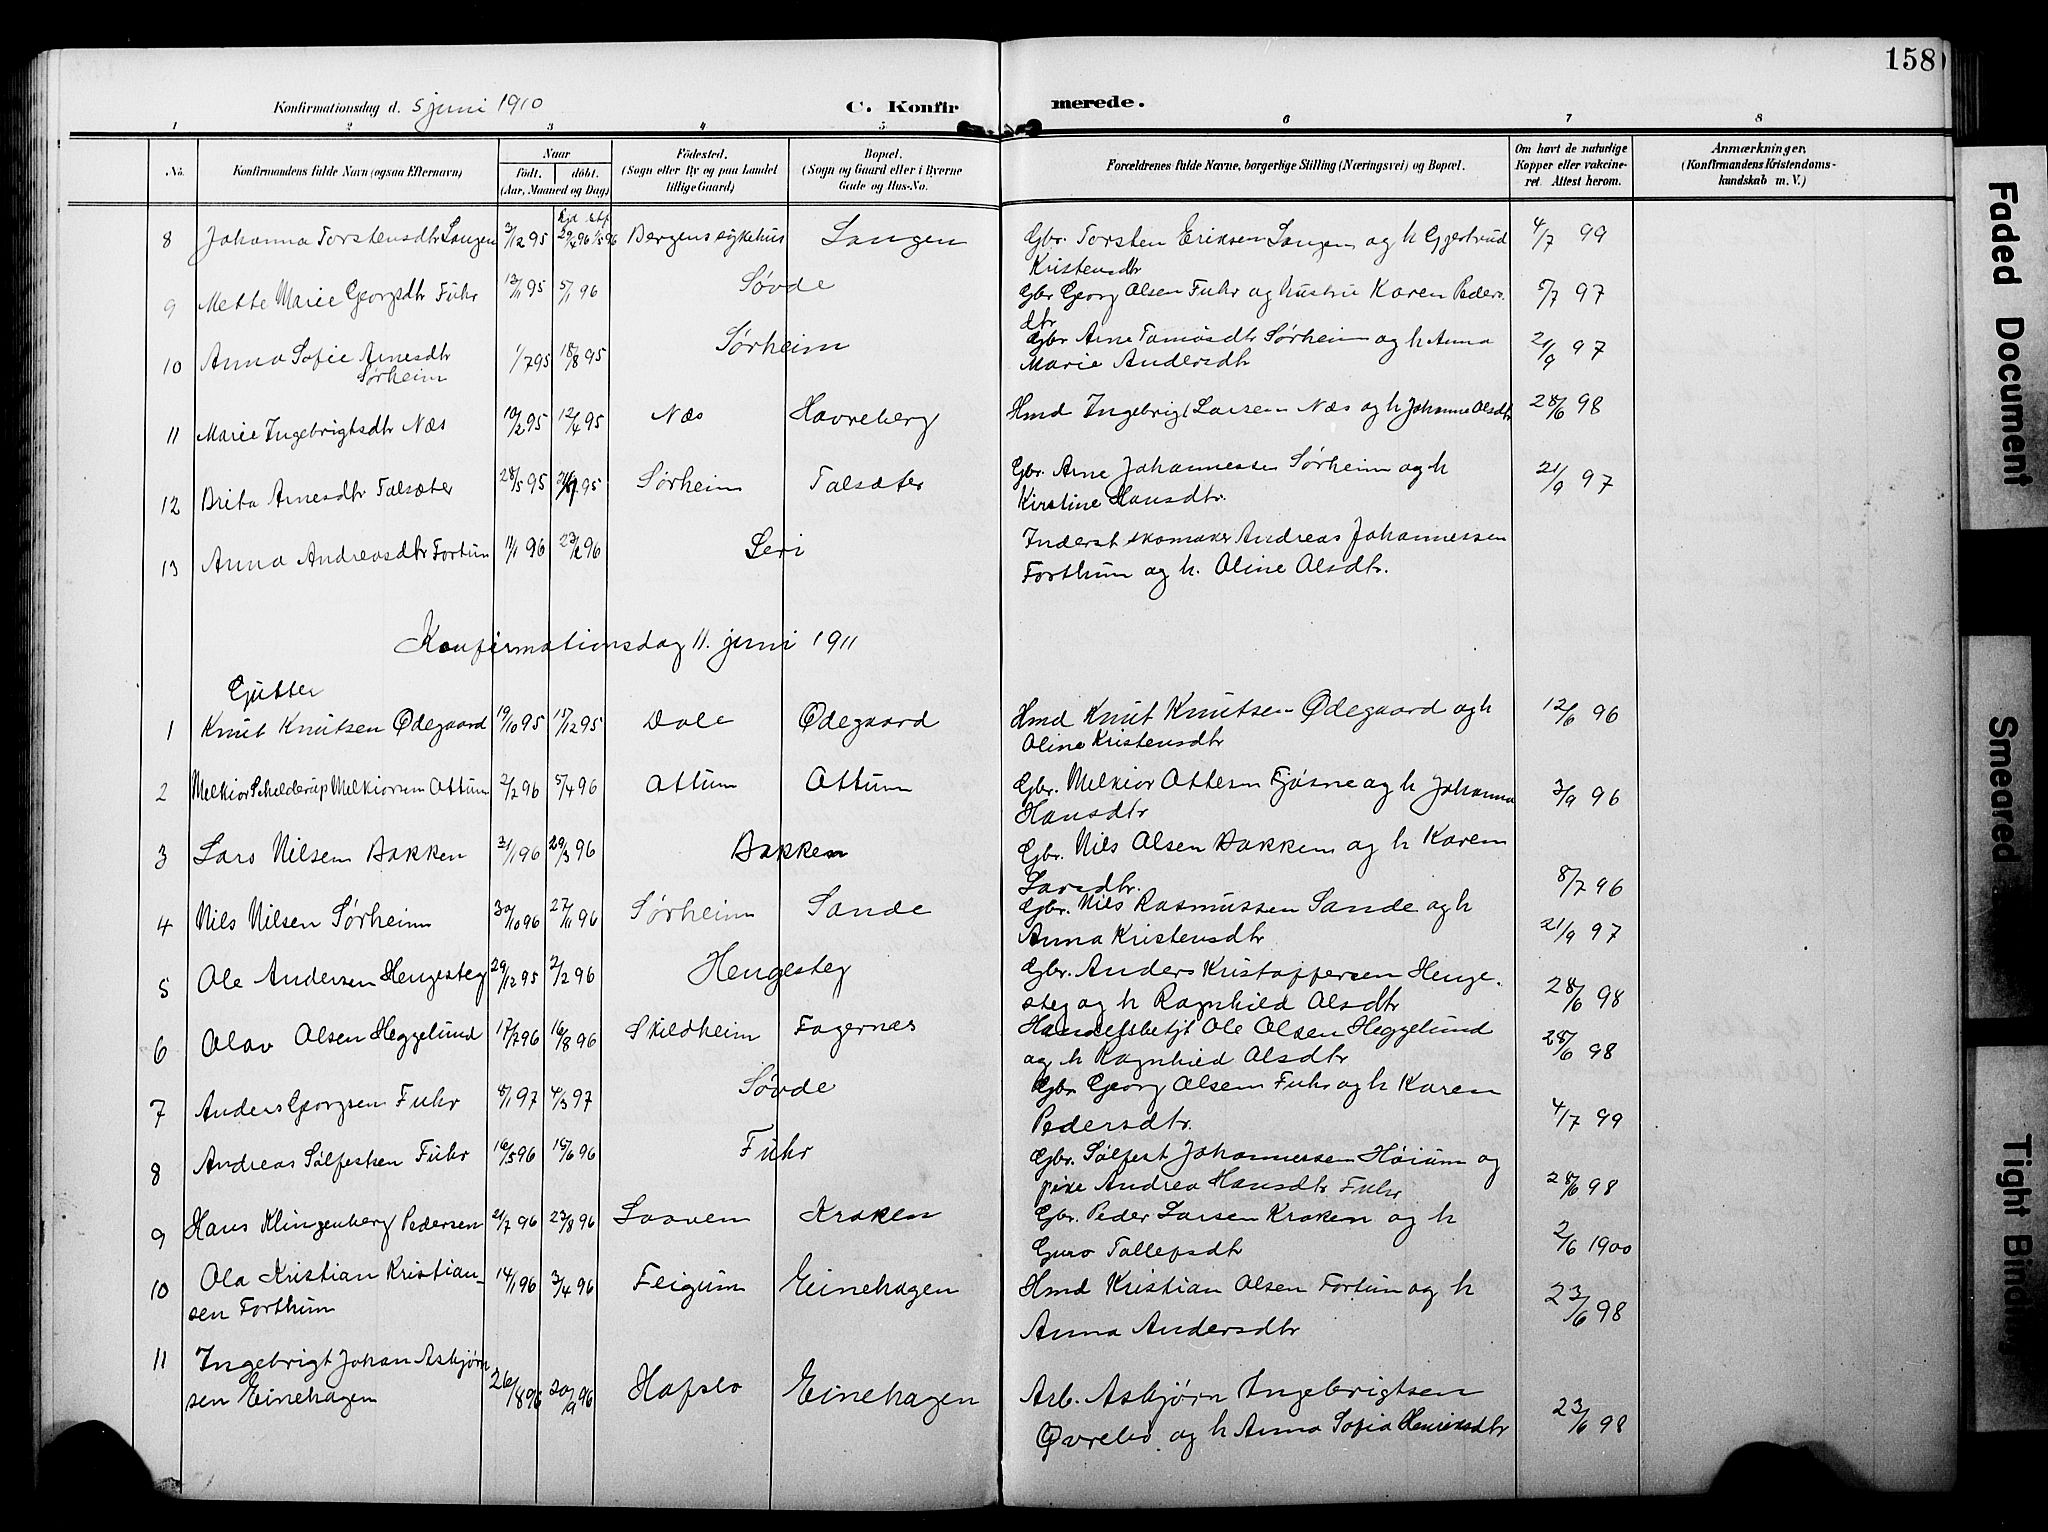 158
Konfirmationsdag d. 5 juni 1910 C. Konfirmerede.
1 2 3 4 5 6 7 8
No. Konfirmandens fulde Navn (ogsaa Efternavn) Naar født. døbt. (Aar, Maaned og Dag) Fødested. (Sogn eller By og paa Landet tillige Gaard) Bopæl. (Sogn og Gaard eller i Byerne Gade og Hus-No. Forældrenes fulde Navne, borgerlige Stilling (Næringsvei) og Bopæl. Om havt de naturlige Kopper eller vakcineret. Attest herom. Anmærkninger. (Konfirmandens Kristendomskundskab m. V.)
8 Johanna Torstensdtr Langen 3/12 95 29/2 96 1/5 96 Bergens sykehus Langen Gbr. Torsten Eriksen Langen og h Gjertrud 4/7 99
Kristensdtr
9 Mette Marie Georgsdtr Fuhr 13/11 95 5/1 96 Søvde Gbr Georg Olsen Fuhr og hustru Karen Peders 5/7 97
dtr
10 Anna Sofie Arnesdtr 1/7 95 18/8 95 Sørheim Gbr Arne Tomasdtr Sørheim og h Anna 21/9 97
Sørheim Marie Andersdtr
11 Marie Ingebrigtsdtr Næs 10/2 95 12/4 95 Næs Havreberg Hmd Ingebrigt Larsen Næs og h Johanne Olsdtr 28/6 98
12 Brita Arnesdtr Talsæter 28/5 95 Sørheim Talsæter Gbr. Arne Johannessen Sørheim og h 21/9 97
Kirstine Hansdtr.
13 Anna Andreasdtr Fortun 11/1 96 23/2 96 Leri Inderst skomaker Andreas Johannessen
Forthun og h. Oline Olsdtr.
Konfirmationsdag 11. juni 1911
Gutter
1 Knut Knutsen Ødegaard 19/10 95 15/12 95 Dale Ødegaard Hmd Knut Knutsen Ødegaard og h 12/6 96
Oline Kristensdtr
2 Melkior Schelderup Melkiorsen Ottum 2/2 96 5/4 96 Ottum Ottum Gbr. Melkior Ottesen Fjøsne og h Johanna 3/9 96
Hansdtr
3 Lars Nilsen Bakken 31/1 96 29/3 96 Bakken Gbr. Nils Olsen Bakken og h Karen
Larsdtr. 8/7 96
4 Nils Nilsen Sørheim 30/10 96 27/11 96 Sørheim Sande Gbr. Nils Rasmussen Sande og h
Anna Kristensdtr 21/9 97
5 Ole Andersen Hengesteg 29/12 95 2/2 96 Hengesteg Gbr. Anders Kristoffersen Henge-
steg og h Ragnhild Olsdtr 28/6 98
6 Olav Olsen Heggelund 17/7 96 16/8 96 Skildheim Fagernæs Handelsbetjt Ole Olsen Heggelund
og h Ragnhild Olsdtr 28/6 98
7 Anders Georgsen Fuhr 8/1 97 4/3 97 Søvde Gbr Georg Olsen Fuhr og h Karen
Pedersdtr. 4/7 99
8 Andreas Sølfestsen Fuhr 16/5 96 15/6 96 Fuhr Gbr. Sølfest Johannessen Høium og
pike Andrea Hansdtr Fuhr 28/6 98
9 Hans Klingenberg Pedersen 21/7 96 23/8 96 Kroken Gbr. Peder Larsen Kroken og h
Guro Tollefsdtr 2/6 1900
10 Ola Kristian Kristian- 14/1 96 3/4 96 Feigum Einehagen Hmd Kristian Olsen Fortun og h
sen Forthun Anna Andersdtr 23/6 98
11 Ingebrigt Johan Asbjørn
sen Einehagen 26/8 96 20/9 96 Hafslo Einehagen Arb. Asbjørn Ingebrigtsen
Øvrebø og h Anna Sofia Henriksdtr 23/6 98
Faded Document
Smeared
Tight Binding